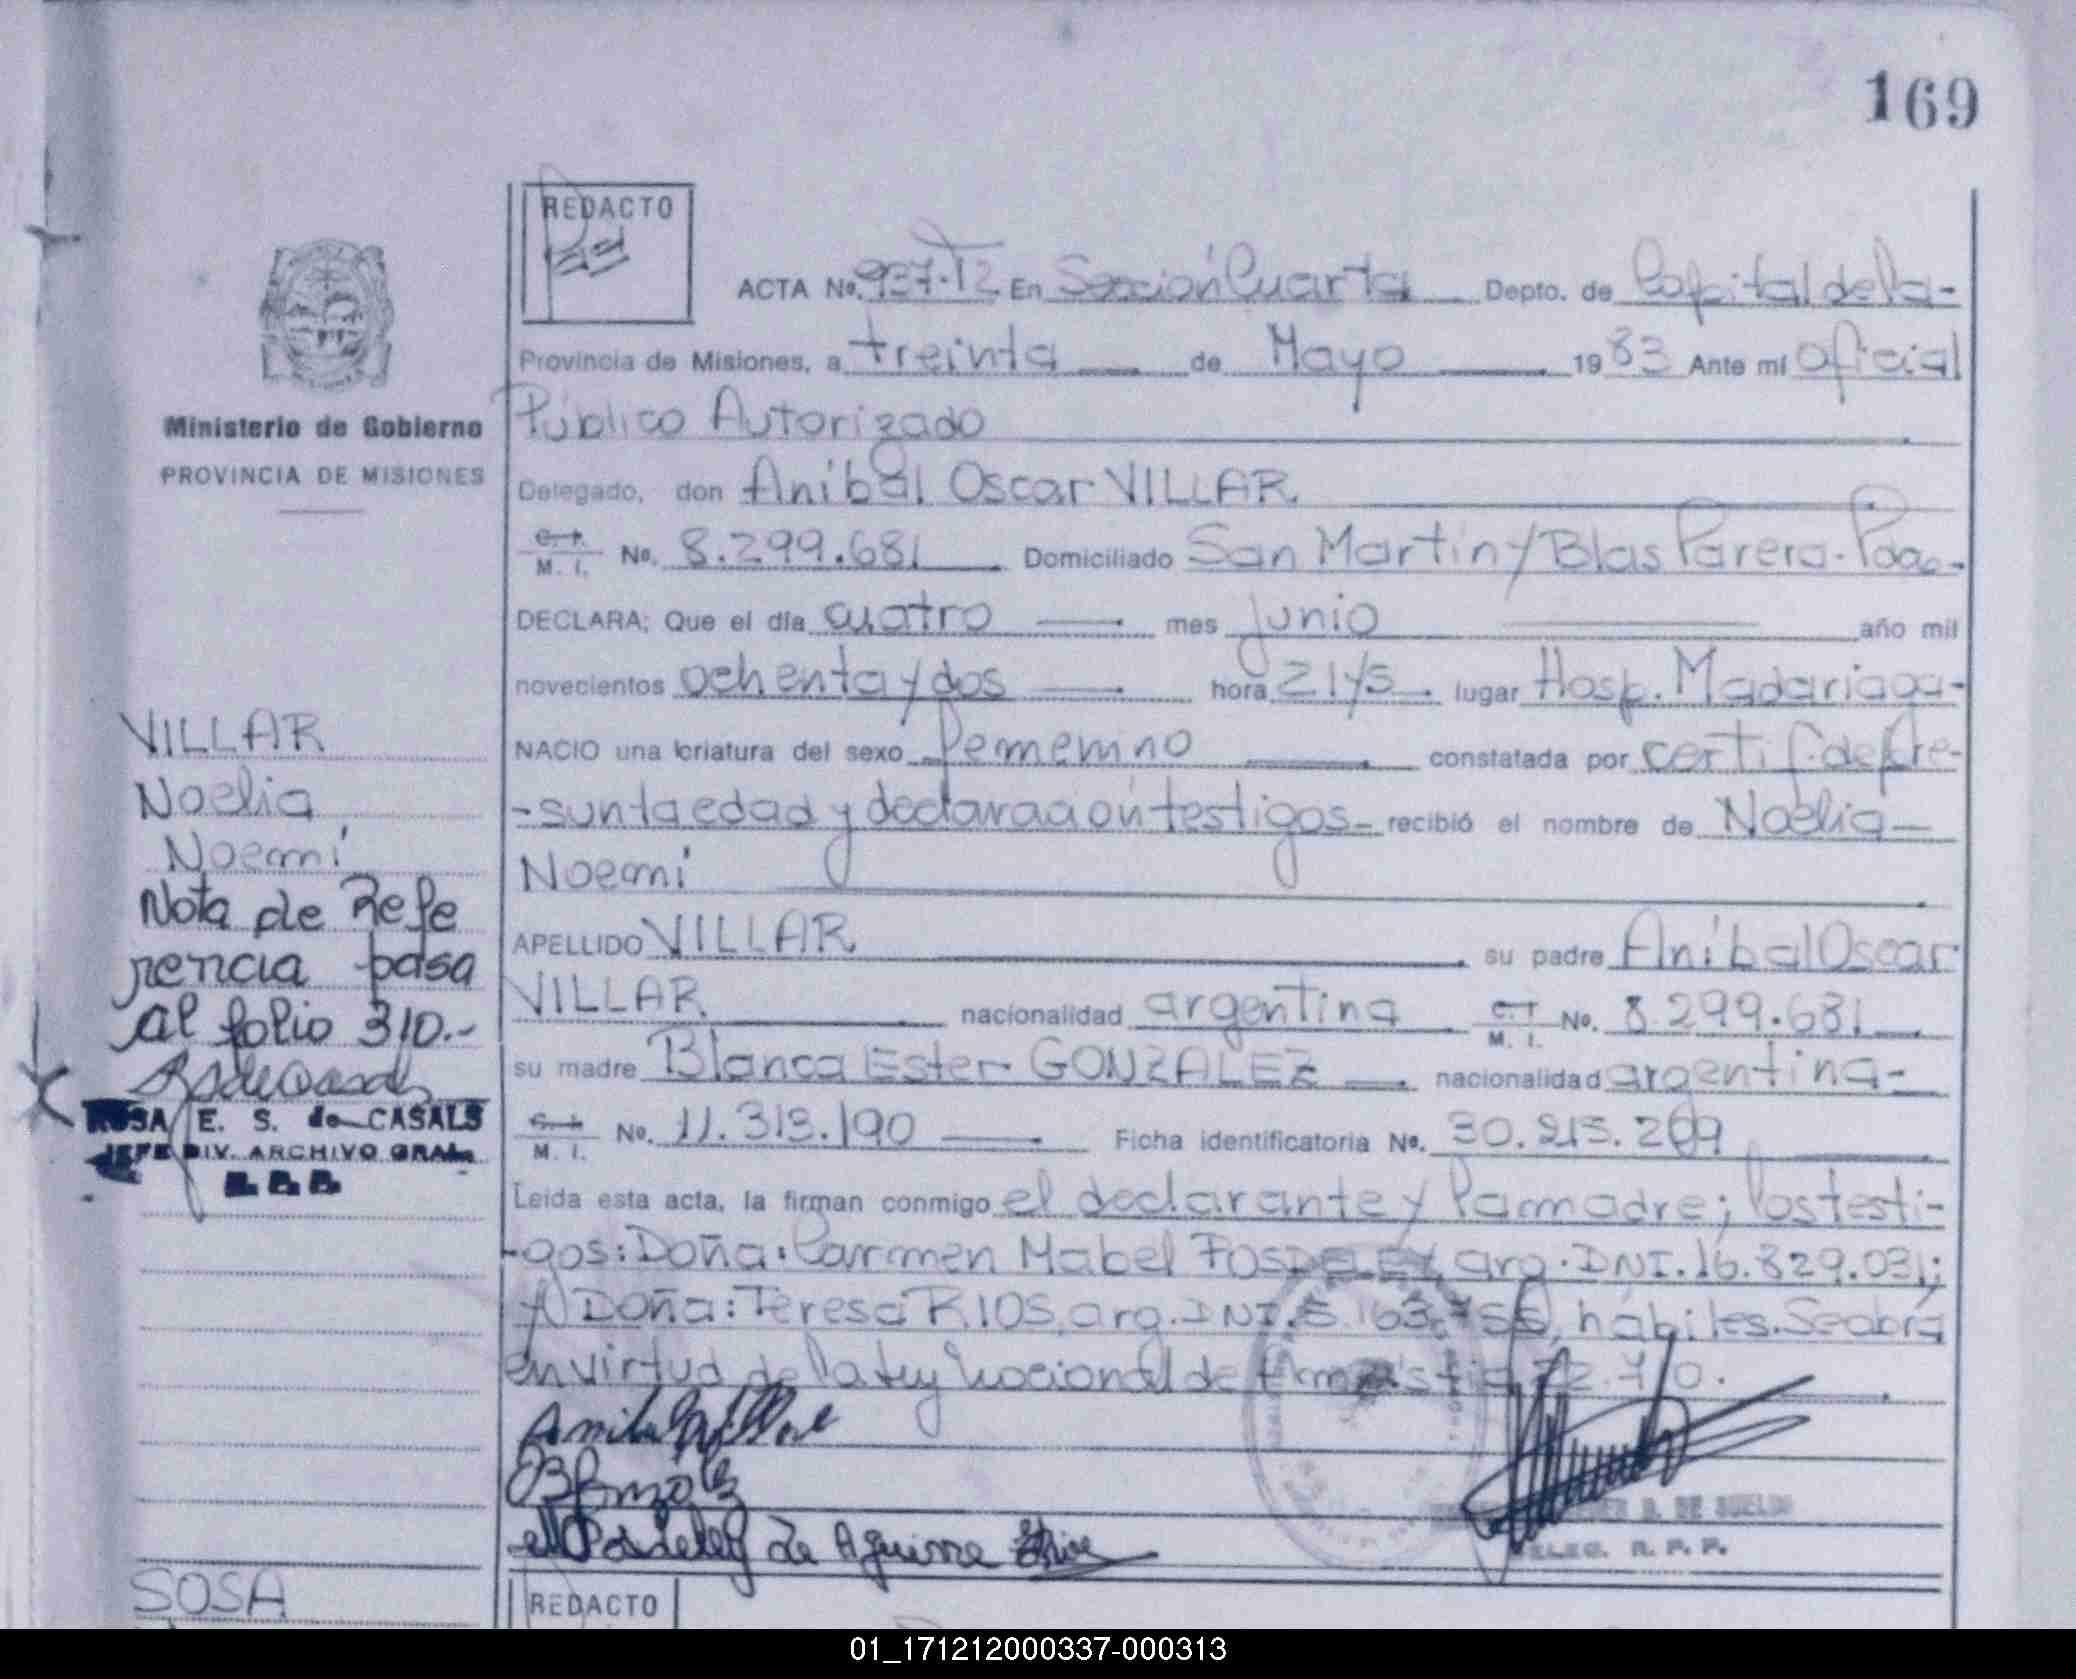 169
REDACTO
ACTA No. 937.T2 En Sección Cuarta Depto. de Capital de la-
Provincia de Misiones, a treinta de Mayo 1983 Ante mí oficial
Público Autorizado
Delegado, don Aníbal Oscar VILLAR
C. I. M. I. No. 8.299.681 Domiciliado San Martin y Blas Parera-Pdas-
DECLARA: Que el día cuatro mes junio año mil
novecientos ochenta y dos hora 21 y 5 lugar Hosp. Madariaga-
NACIO una criatura del sexo femenino constatada por certif. de pre-
-sunta edad y declaración testigos- recibió el nombre de Noelia-
Noemí
APELLIDO VILLAR su padre Aníbal Oscar
VILLAR nacionalidad argentina C. I. M. I. No. 8.299.681
su madre Blanca Ester GONZALEZ nacionalidad argentina-
C. I. M. I. No. 11.313.190 Ficha identificatoria No. 30.215.269
Leída esta acta, la firman conmigo el declarante y la madre; los testi-
-gos: Doña: Carmen Mabel POSDELEY arg. DNI. 16.829.031;
y Doña: Teresa RIOS, arg. DNI. hábiles. Se labra
en virtud de la Ley Nacional de Amnistia
de Aguirre
DELEG. R. P. P.
REDACTO
Ministerio de Gobierno
PROVINCIA DE MISIONES
VILLAR
Noelia
Noemí
Nota de Refe
rencia pasa
al folio 310.-
ROSA E. S. de CASALS
JEFE DIV. ARCHIVO GRAL.
R. P. P.
SOSA
01_171212000337-000313